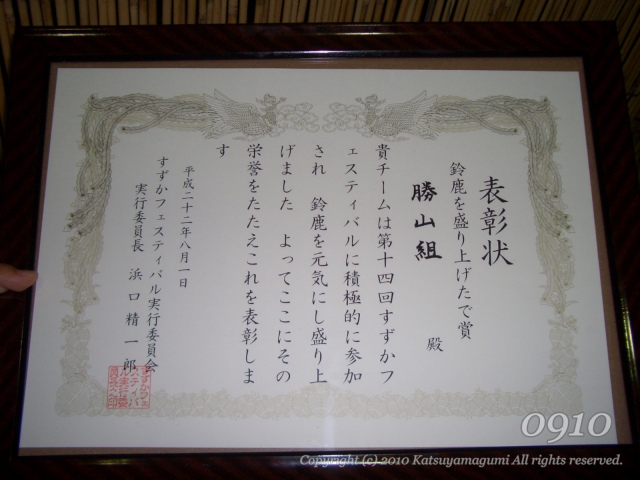 表彰状
鈴鹿を盛り上げたで賞
勝山組 殿
貴チームは第十四回すずかフ
ェスティバルに積極的に参加
され 鈴鹿を元気にし盛り上
げました よってここにその
栄誉をたたえこれを表彰しま
す
平成二十二年八月一日
すずかフェスティバル実行委員会
実行委員長 浜口精一郎
0910
Copyright (c) 2010 Katsuyamagumi All rights reserved.